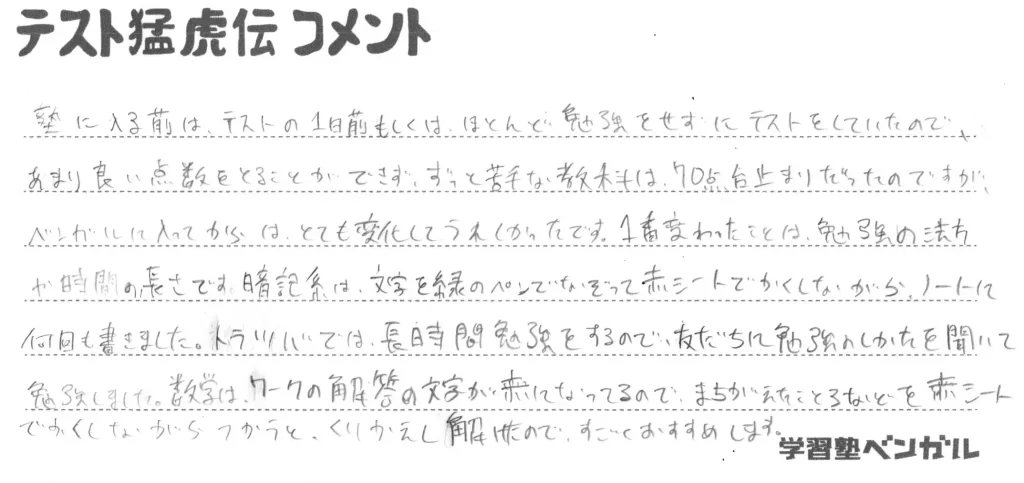 テスト猛虎伝 コメント
塾に入る前は、テストの1日前もしくは、ほとんど勉強をせずにテストをしていたので、
あまり良い点数をとることができず、ずっと苦手な教科は、70点台止まりだったのですが、
ベンガルに入ってからは、とても変化してうれしかったです。1番変わったことは、勉強の法方
や時間の長さです。暗記系は、文字を緑のペンでなぞって赤シートでかくしながら、ノートに
何回も書きました。トラリバでは、長時間勉強をするので、友だちに勉強のしかたを聞いて
勉強しました。数学は、ワークの解答の文字が赤になってるので、まちがえたところなどを赤シート
でかくしながらつかうと、くりかえし解けたので、すごくおすすめします。
学習塾ベンガル